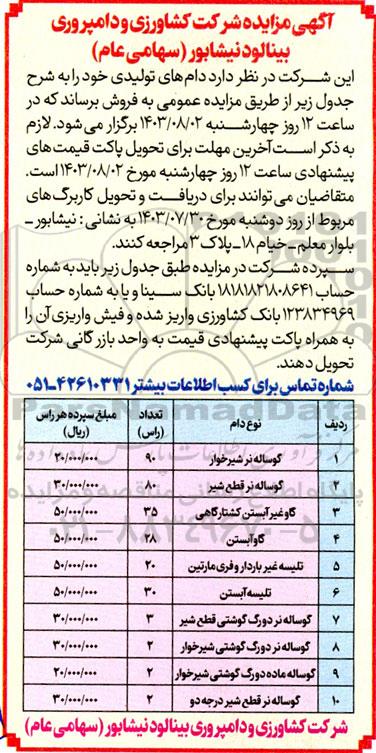 آگهی مزایده شرکت کشاورزی و دامپروری
بینالود نیشابور (سهامی عام)
این شرکت در نظر دارد دام‌های تولیدی خود را به شرح
جدول زیر از طریق مزایده عمومی به فروش برساند که در
ساعت ۱۲ روز چهارشنبه ۱۴۰۳/۰۸/۰۲ برگزار می‌شود. لازم
به ذکر است آخرین مهلت برای تحویل پاکت قیمت‌های
پیشنهادی ساعت ۱۲ روز چهارشنبه مورخ ۱۴۰۳/۰۸/۰۲ است.
متقاضیان می‌توانند برای دریافت و تحویل کاربرگ‌های
مربوط از روز دوشنبه مورخ ۱۴۰۳/۰۷/۳۰ به نشانی : نیشابور ـ
بلوار معلم ـ خیام ۱۸ ـ پلاک ۳ مراجعه کنند.
سپرده شرکت در مزایده طبق جدول زیر باید به شماره
حساب ۱۸۱۸۱۸۲۱۸۰۸۶۴۱ بانک سینا و یا به شماره حساب
۱۲۳۸۳۴۹۶۹ بانک کشاورزی واریز شده و فیش واریزی آن را
به همراه پاکت پیشنهادی قیمت به واحد بازرگانی شرکت
تحویل دهند.
شماره تماس برای کسب اطلاعات بیشتر ۴۲۶۱۰۳۳۱-۰۵۱
ردیف نوع دام تعداد (راس) مبلغ سپرده هر راس (ریال)
۱ گوساله نر شیرخوار ۹۰ ۲۰/۰۰۰/۰۰۰
۲ گوساله نر قطع شیر ۸۰ ۳۰/۰۰۰/۰۰۰
۳ گاو غیر آبستن کشتارگاهی ۳۵ ۵۰/۰۰۰/۰۰۰
۴ گاو آبستن ۲۸ ۵۰/۰۰۰/۰۰۰
۵ تلیسه غیر باردار و فری مارتین ۲۰ ۵۰/۰۰۰/۰۰۰
۶ تلیسه آبستن ۳۰ ۵۰/۰۰۰/۰۰۰
۷ گوساله نر دورگ گوشتی قطع شیر ۳ ۳۰/۰۰۰/۰۰۰
۸ گوساله نر دورگ گوشتی شیرخوار ۲ ۳۰/۰۰۰/۰۰۰
۹ گوساله ماده دورگ گوشتی شیرخوار ۲ ۲۰/۰۰۰/۰۰۰
۱۰ گوساله نر قطع شیر درجه دو ۲ ۳۰/۰۰۰/۰۰۰
شرکت کشاورزی و دامپروری بینالود نیشابور (سهامی عام)
ParsNamadData
پایگاه اطلاع رسانی مناقصه و مزایده
۰۲۱-۸۸۳۴۹۶۷۰-۵